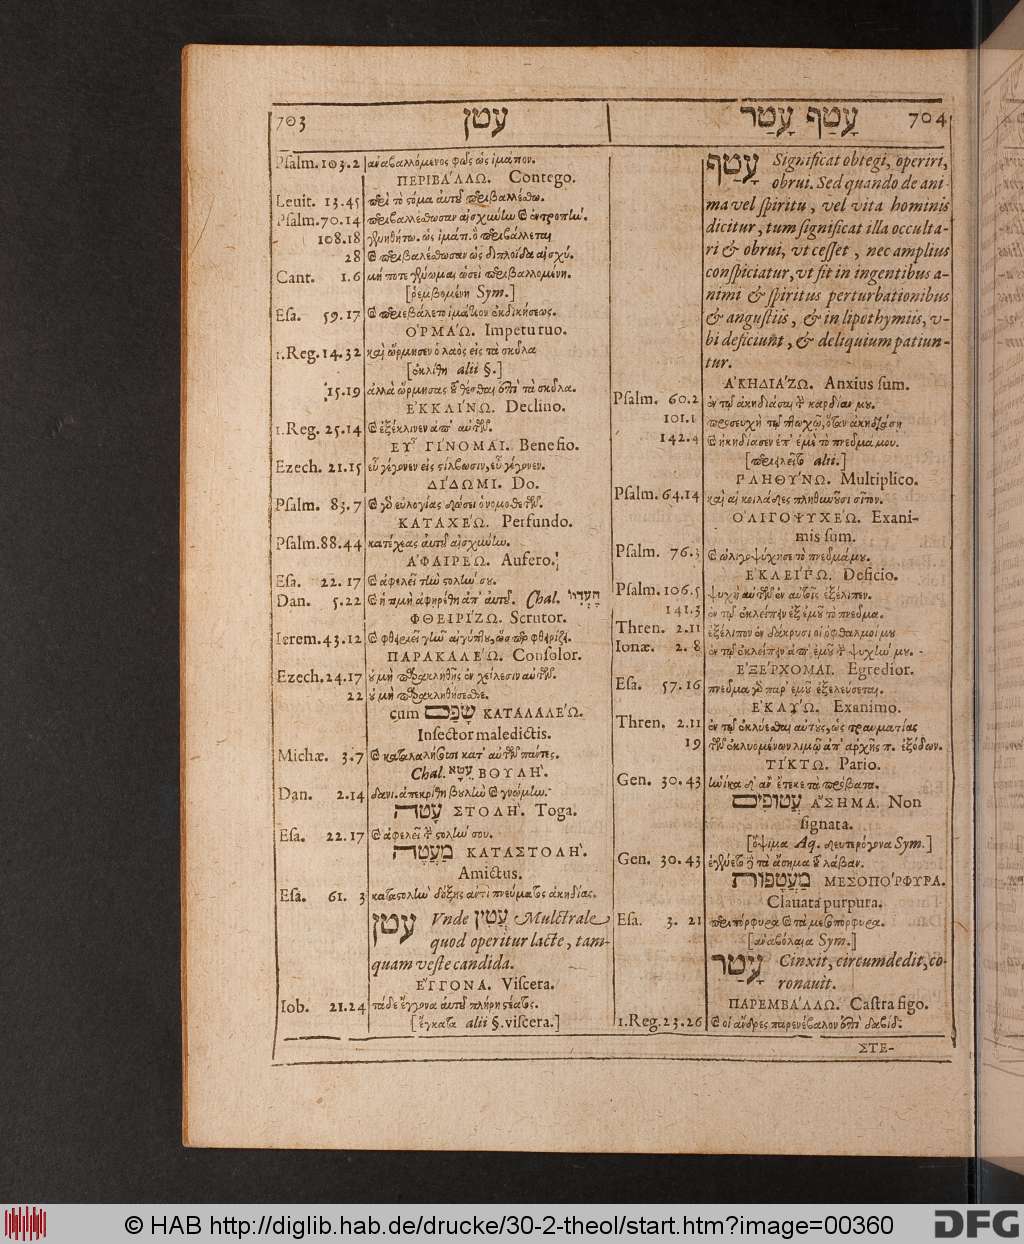 703 עָטַן
Psalm.103.2 ἀναβαλλόμενος φῶς ὡς ἱμάτιον.
ΠΕΡΙΒΆΛΛΩ. Contego.
Leuit. 13.45 περὶ τὸ στόμα αὐτοῦ περιβαλλέσθω.
Psalm.70.14 περιβαλλέσθωσαν αἰσχύνην καὶ ἐντροπὴν.
108.18 γενηθήτω. ὡς ἱμάτ. ὃ περιβάλλεται
28 καὶ περιβαλέσθωσαν ὡς διπλοΐδα αἰσχύ.
Cant. 1.6 μή ποτε γένωμαι ὡσεὶ περιβαλλομένη.
[ῥεμβομένη Sym.]
Esa. 59.17 καὶ περιεβάλετο ἱμάτιον ἐκδικήσεως.
ὉΡΜΆΩ. Impetu ruo.
1.Reg.14.32 καὶ ὥρμησεν ὁ λαὸς εἰς τὰ σκῦλα
[ἐκλίθη alii §.]
15.19 ἀλλὰ ὥρμησας τοῦ θέσθαι ἐπὶ τὰ σκῦλα.
ἘΚΚΛΊΝΩ. Declino.
1.Reg.25.14 καὶ ἐξέκλινεν ἀπ' αὐτῶν.
ΕΥ͂ ΓΊΝΟΜΑΙ. Benefio.
Ezech. 21.15 εὖ γέγονεν εἰς στίλβωσιν, εὖ γέγονεν.
ΔΊΔΩΜΙ. Do.
Psalm. 83.7 καὶ γὰρ εὐλογίας δώσει ὁ νομοθετῶν.
ΚΑΤΑΧΈΩ. Perfundo.
Psalm.88.44 κατέχεας αὐτοῦ αἰσχύνην.
ἈΦΑΙΡΈΩ. Aufero.
Esa. 22.17 καὶ ἀφελεῖ τὴν στολήν σου.
Dan. 5.22 καὶ ἡ τιμὴ ἀφηρέθη ἀπ' αὐτοῦ. Chal.
ΦΘΕΙΡΊΖΩ. Scrutor.
Ierem.43.12 καὶ φθειριεῖ γῆν αἰγύπτου, ὥσπερ φθειρίζει.
ΠΑΡΑΚΑΛΈΩ. Consolor.
Ezech.24.17 οὐ μὴ παρακληθῇς ἐν χείλεσιν αὐτῶν.
22 οὐ μὴ παρακληθήσεσθε.
cum שָׂפָם ΚΑΤΑΛΑΛΈΩ.
Insector maledictis.
Michæ. 3.7 καὶ καταλαλήσουσι κατ' αὐτῶν πάντες.
Chal. עֵטָא ΒΟΥΛΉ.
Dan. 2.14 δανι. ἀπεκρίθη βουλὴν καὶ γνώμην.
עָטָה ΣΤΟΛΉ. Toga.
Esa. 22.17 καὶ ἀφελεῖ τὴν στολήν σου.
מַעֲטֶה ΚΑΤΑΣΤΟΛΉ.
Amictus.
Esa. 61.3 καταστολὴν δόξης ἀντὶ πνεύματος ἀκηδίας.
עטן Vnde עֲטִין Mulctrale
quod operitur lacte, tam-
quam veste candida.
ἜΓΓΟΝΑ. Viscera.
Iob. 21.24 τὰ δὲ ἔγγονα αὐτοῦ πλήρη στέατος.
[ἔγκατα alii §. viscera.]
עָטַף עָטַר 704
עָטַף Significat obtegi, operiri,
obrui. Sed quando de ani-
ma vel spiritu, vel vita hominis
dicitur, tum significat illa occulta-
ri & obrui, vt cesset, nec amplius
conspiciatur, vt fit in ingentibus a-
nimi & spiritus perturbationibus
& angustiis, & in lipothymiis, v-
bi deficiunt, & deliquium patiun-
tur.
ἈΚΗΔΙΆΖΩ. Anxius sum.
Psalm. 60.2 ἐν τῷ ἀκηδιάσαι τὴν καρδίαν μου.
101.1 προσευχὴ τῷ πτωχῷ, ὅταν ἀκηδιάσῃ
142.4 καὶ ἠκηδίασεν ἐπ' ἐμὲ τὸ πνεῦμα μου.
[περιηλεῖτο alii.]
ΠΛΗΘΎΝΩ. Multiplico.
Psalm.64.14 καὶ αἱ κοιλάδες πληθυνοῦσι σῖτον.
ὈΛΙΓΟΨΥΧΈΩ. Exani-
mis sum.
Psalm. 76.3 καὶ ὠλιγοψύχησε τὸ πνεῦμά μου.
ἘΚΛΕΊΠΩ. Deficio.
Psalm.106.5 ψυχὴ αὐτῶν ἐν αὐτοῖς ἐξέλιπεν.
141.3 ἐν τῷ ἐκλείπειν ἐξ ἐμοῦ τὸ πνεῦμα.
Thren. 2.11 ἐξέλιπον ἐν δάκρυσι οἱ ὀφθαλμοί μου
Ionæ. 2.8 ἐν τῷ ἐκλείπειν ἀπ' ἐμοῦ τὴν ψυχήν μου.
ἘΞΈΡΧΟΜΑΙ. Egredior.
Esa. 57.16 πνεῦμα γὰρ παρ' ἐμοῦ ἐξελεύσεται.
ἘΚΛΎΩ. Exanimo.
Thren. 2.11 ἐν τῷ ἐκλύεσθαι αὐτοὺς, ὡς τραυματίας
19 τῶν ἐκλυομένων λιμῷ ἀπ' ἀρχῆς π. ἐξόδων.
ΤΊΚΤΩ. Pario.
Gen. 30.43 ἡνίκα δ' ἂν ἔτεκε τὰ πρόβατα.
עֲטוּפִים ἌΣΗΜΑ. Non
signata.
[ὄψιμα Aq. δευτερόγονα Sym.]
Gen. 30.43 ἐγένετο δὲ τὰ ἄσημα τοῦ λάβαν.
מַעֲטָפוֹת ΜΕΣΟΠΌΡΦΥΡΑ.
Clauata purpura.
Esa. 3.21 περιπόρφυρα καὶ τὰ μεσοπόρφυρα.
[ἀναβόλαια Sym.]
עָטַר Cinxit, circumdedit, co-
ronauit.
ΠΑΡΕΜΒΆΛΛΩ. Castra figo.
1.Reg.23.26 καὶ οἱ ἄνδρες παρενέβαλον ἐπὶ δαβίδ.
ΣΤΕ-
© HAB http://diglib.hab.de/drucke/30-2-theol/start.htm?image=00360
DFG